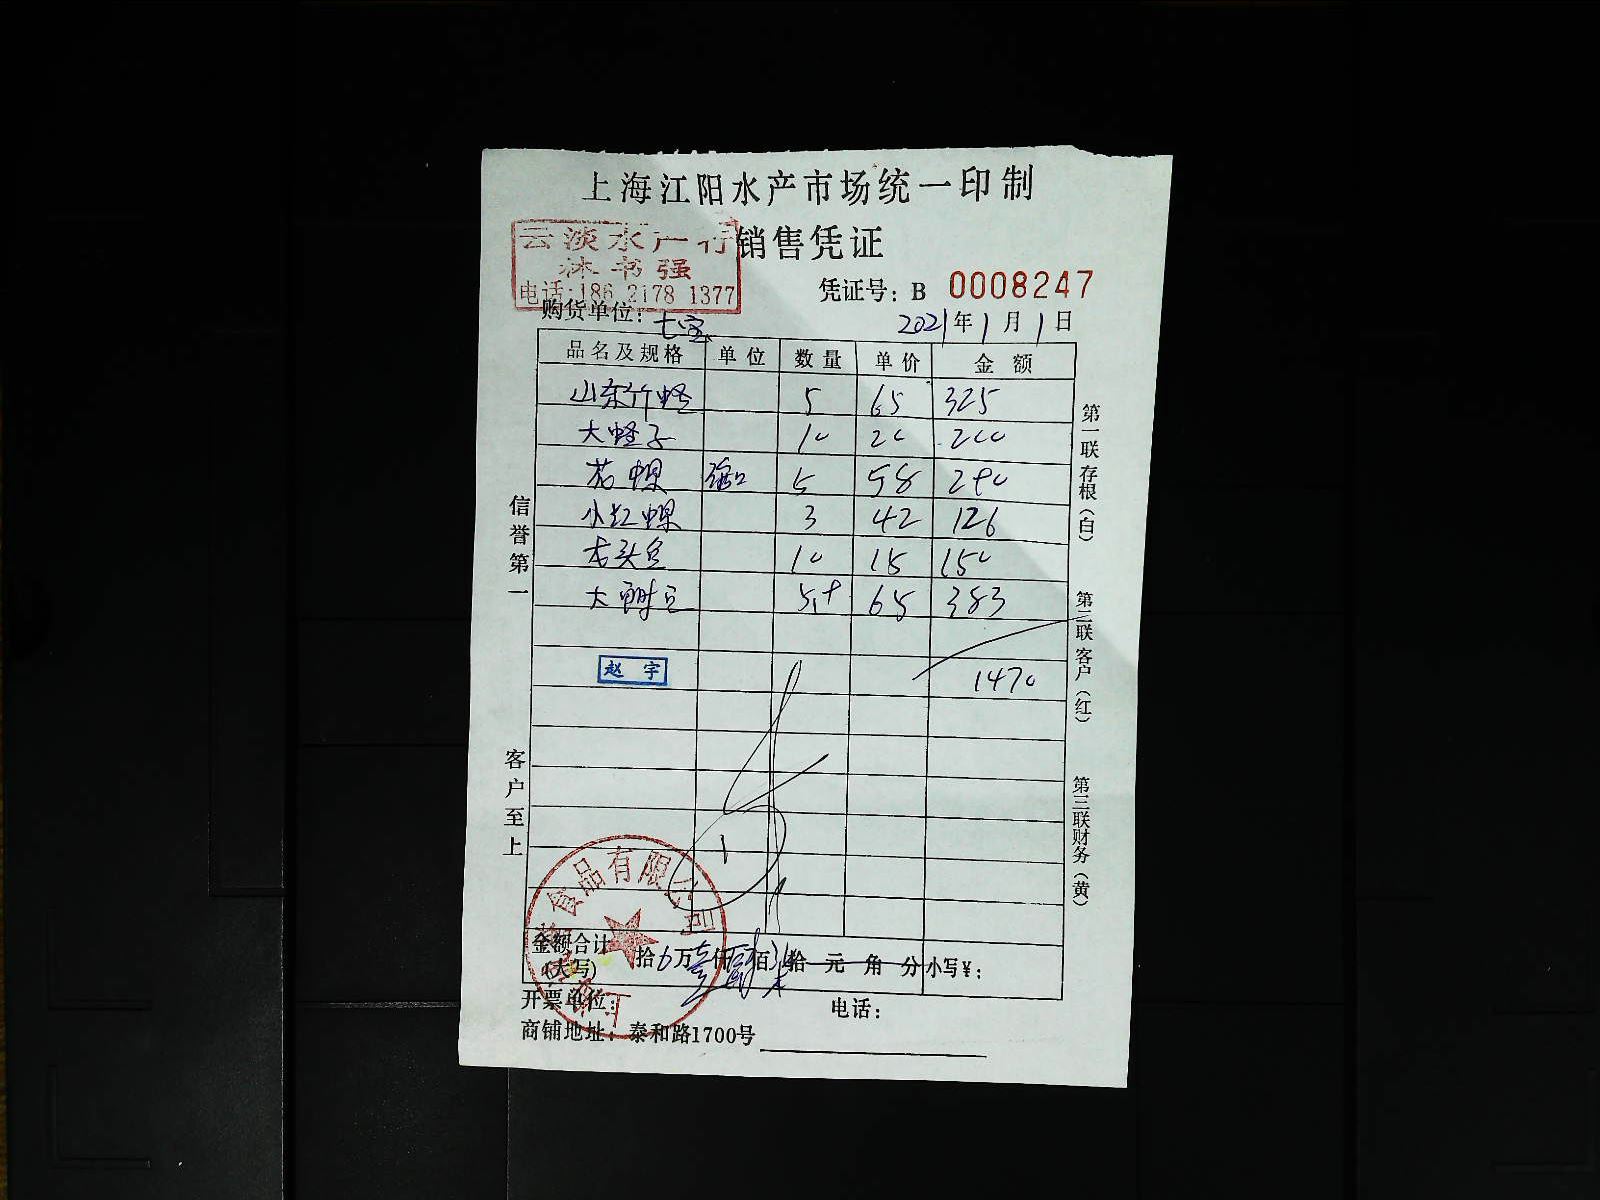 上海江阳水产市场统一印制
云淡水产行 销售凭证
林书强
电话:186 2178 1377
凭证号: B 0008247
购货单位: 七宝
2021年1月1日
品名及规格 单位 数量 单价 金额
山东竹蛏 5 65 325
大蛏子 10 20 200
花螺 5 58 290
小红螺 3 42 126
龙头鱼 10 15 150
大 5.9 65 383
赵宇 1470
信誉第一
客户至上
第一联存根(白)
第二联客户(红)
第三联财务(黄)
食品有限公司
金额合计(大写) 拾 万壹仟肆佰柒拾元角分 小写¥:
开票单位: 电话:
商铺地址: 泰和路1700号